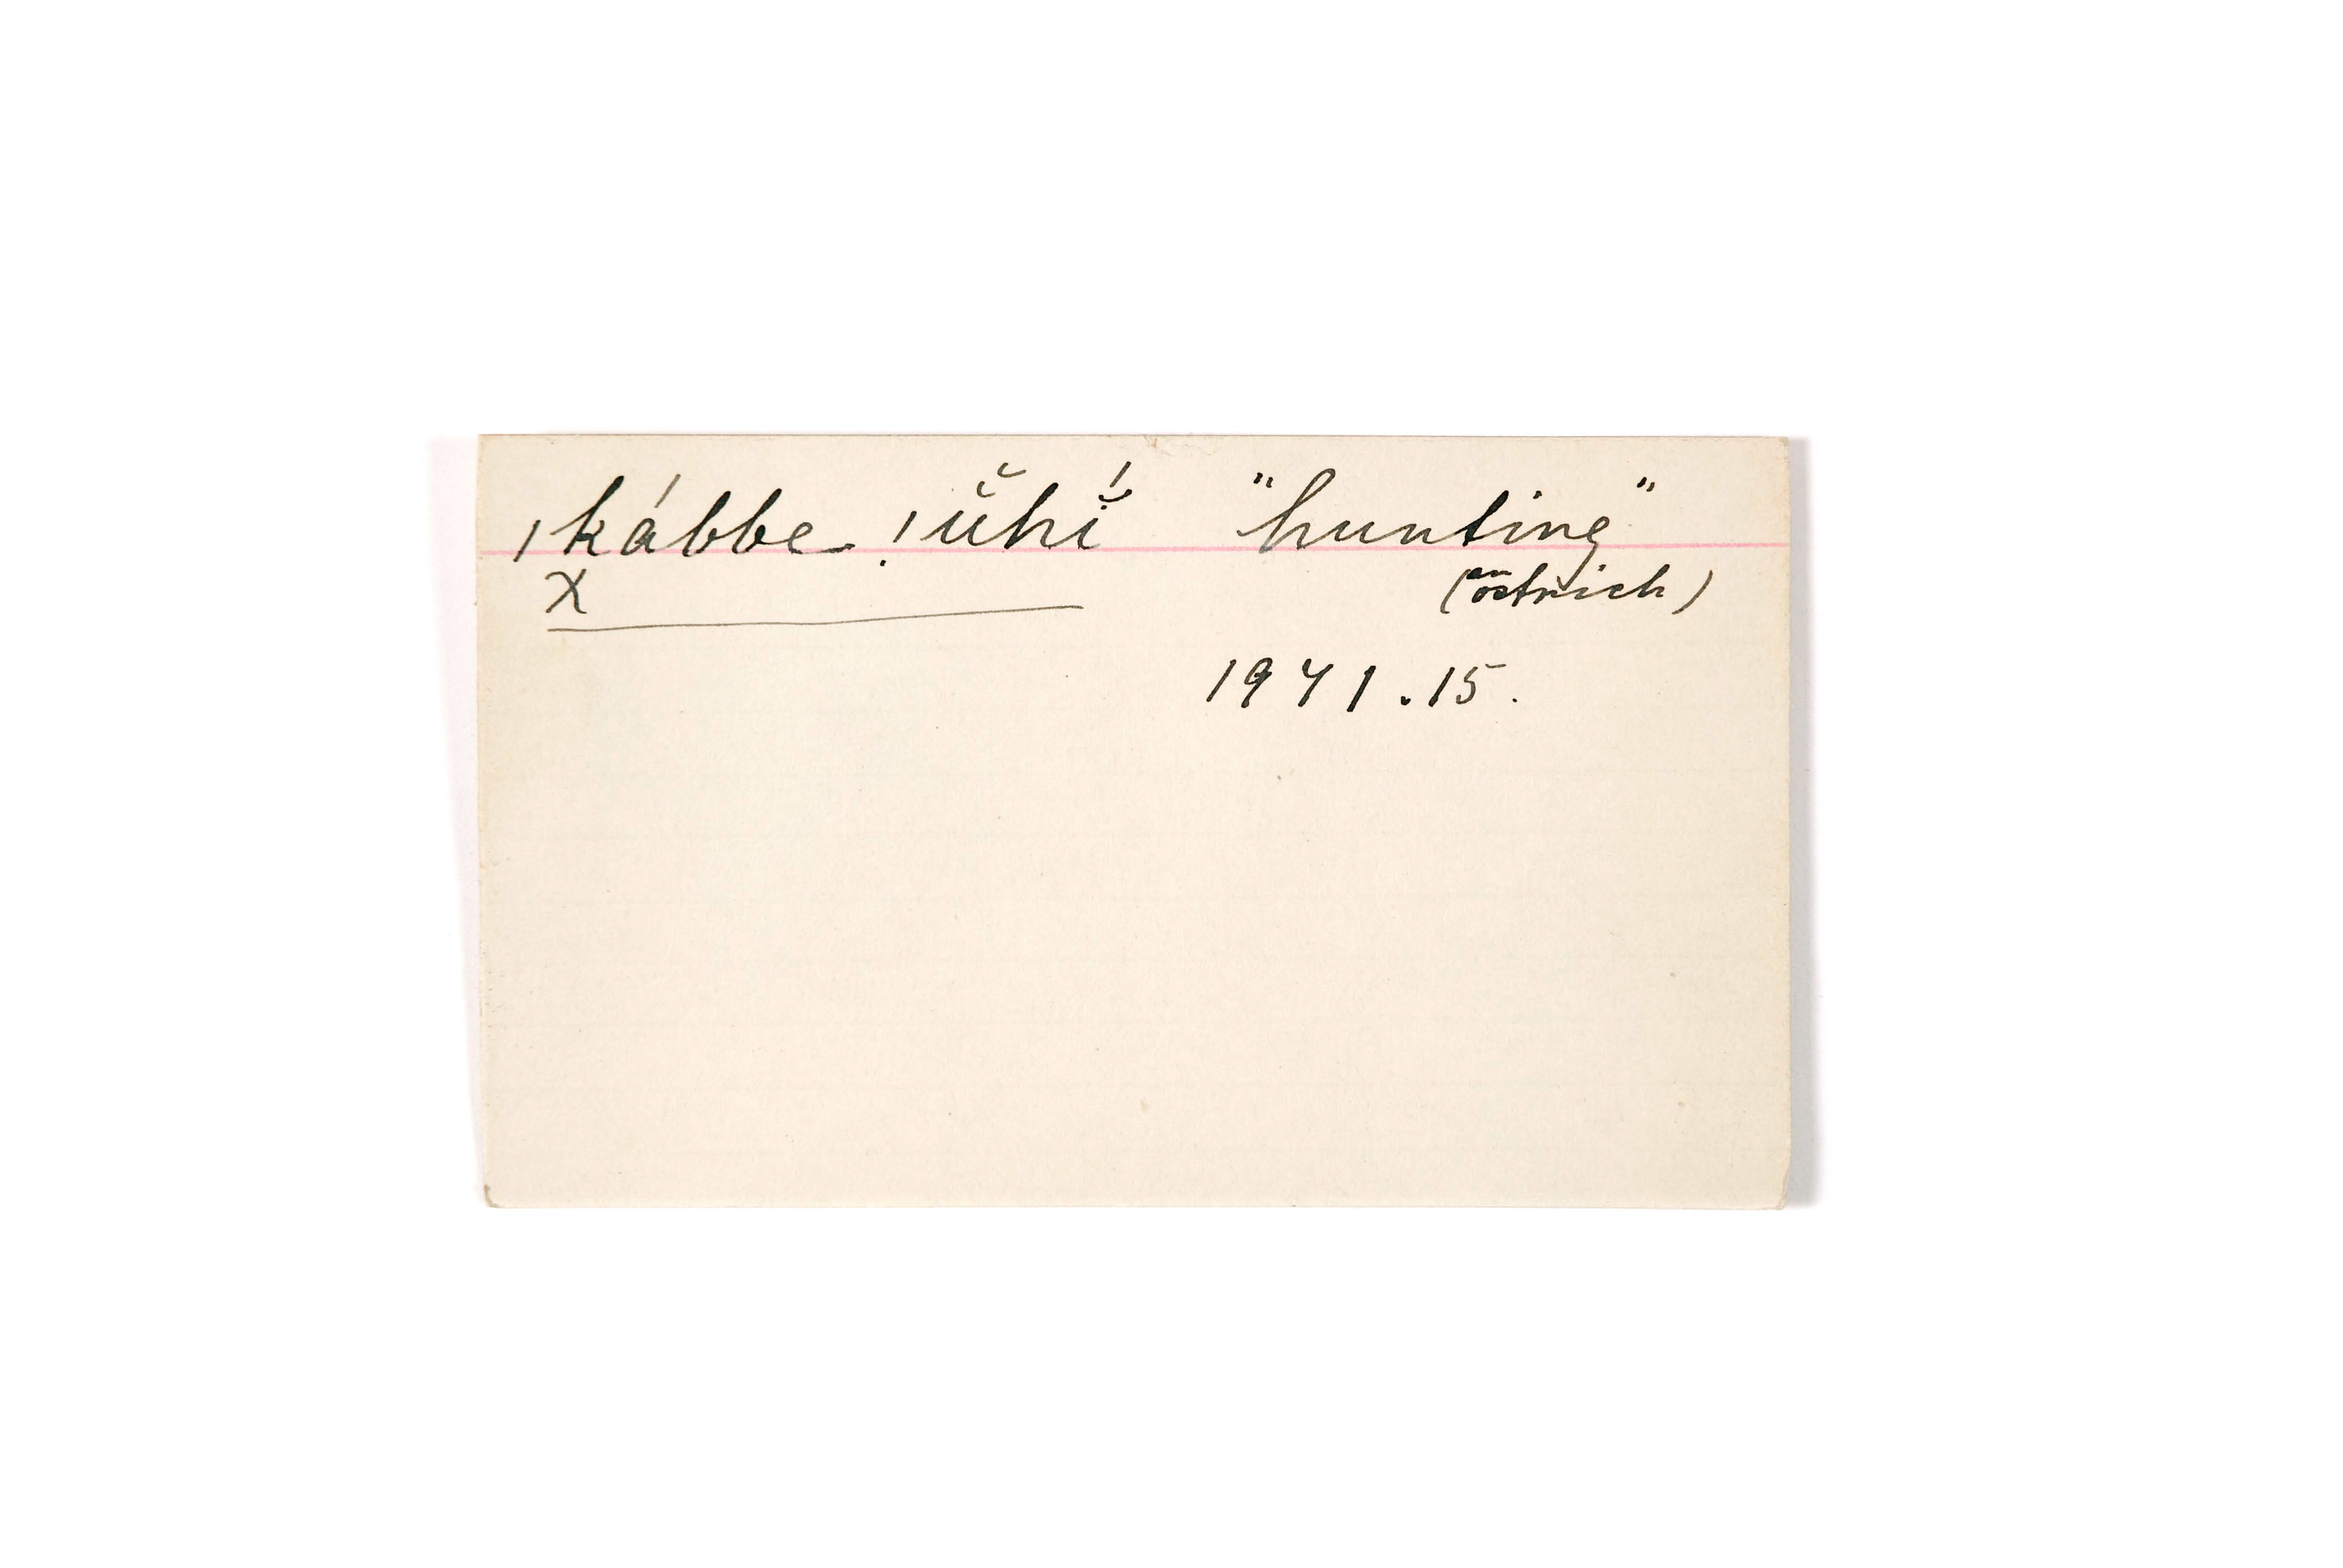 |kábbe !ŭhí̆ "hunting"
x (an ostrich)
1941.15.